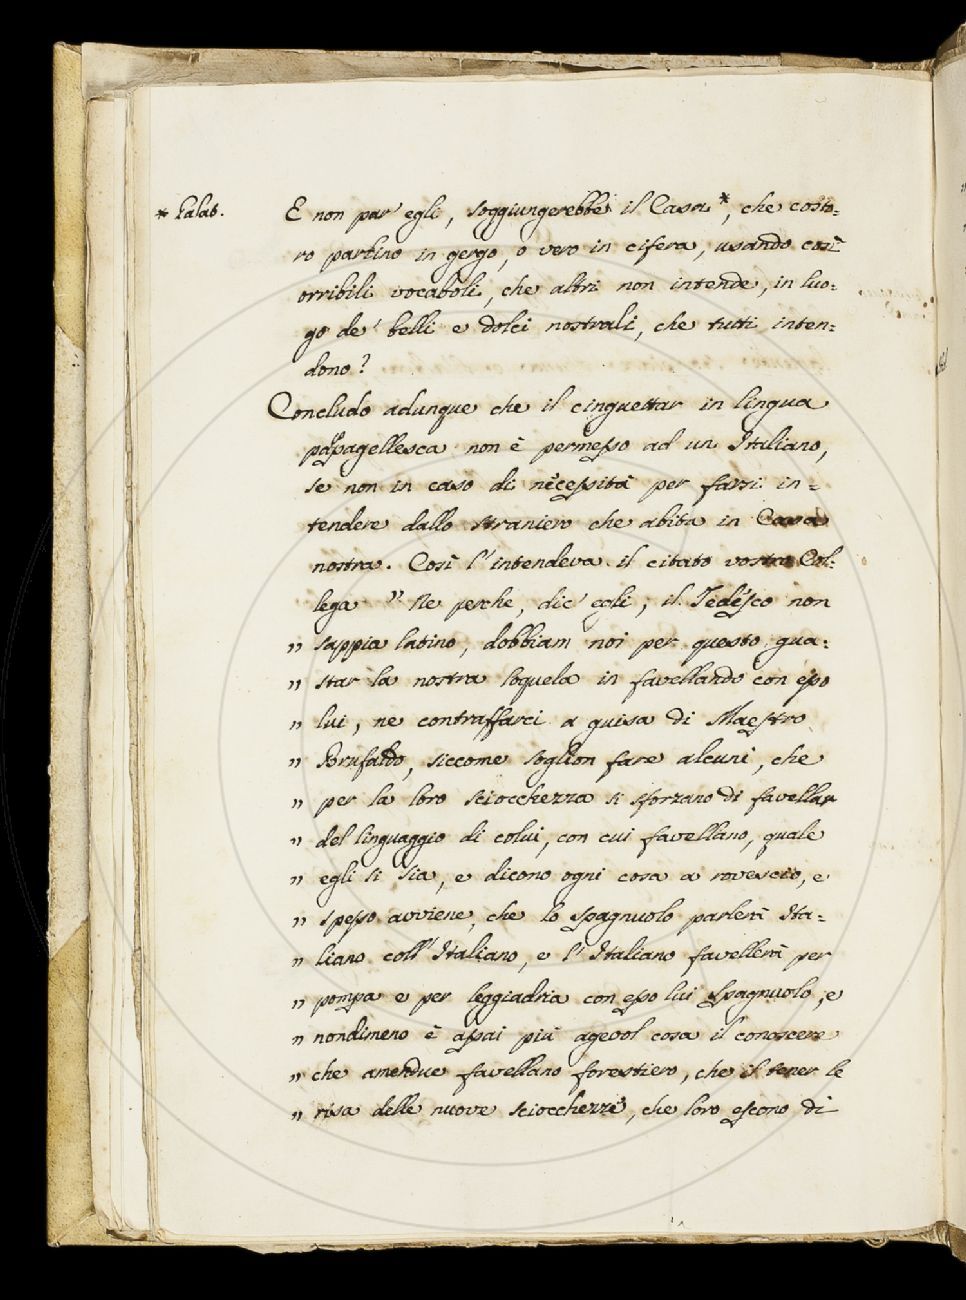 * Galat.
E non par' egli, soggiungerebbe il Casa *, che costo=
ro parlino in gergo, o vero in cifera, usando così
orribili vocaboli, che altri non intende, in luo=
go de' belli e dolci nostrali, che tutti inten=
dono?
Concludo adunque che il cinguettar in lingua
pappagellesca non è permesso ad un Italiano,
se non in caso di necessità per farsi in=
tendere dallo straniero che abita in Casa
nostra. Così l'intendeva il citato vostro Col=
lega " Ne perche, dic' egli, il Tedesco non
" sappia latino, dobbiam noi per questo gua=
" star la nostra loquela in favellando con esso
" lui, ne contraffarci a guisa di Maestro
" Brufaldo, siccome soglion fare alcuni, che
" per la loro sciocchezza si sforzano di favellar
" del linguaggio di colui, con cui favellano, quale
" egli si sia, e dicono ogni cosa a rovescio, e
" spesso avviene, che lo Spagnuolo parlerà Ita=
" liano coll' Italiano, e l' Italiano favellerà per
" pompa e per leggiadria con esso lui Spagnuolo, e
" nondimeno è assai più agevol cosa il conoscere
" che amendue favellano forestiero, che il tener le
" risa delle nuove sciocchezze, che loro escono di